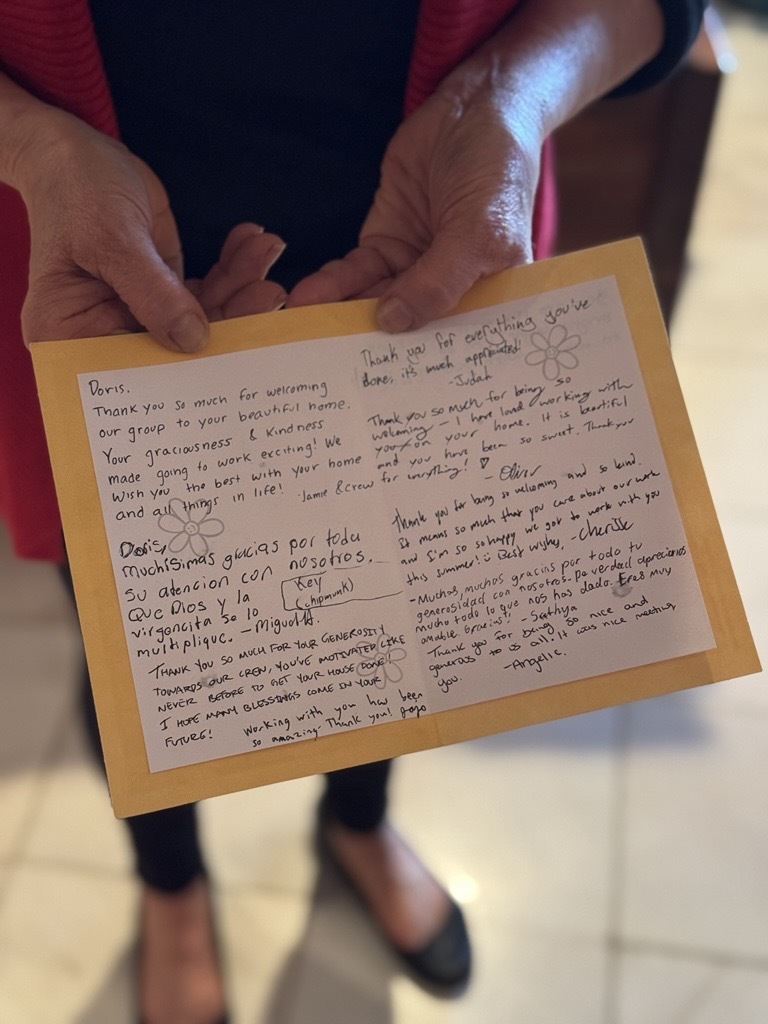 Doris,
Thank you so much for welcoming
our group to your beautiful home.
Your graciousness & kindness
made going to work exciting! We
wish you the best with your home
and all things in life!
- Jamie & Crew
Doris,
Muchísimas gracias por toda
su atencion con nosotros.
Que Dios y la
virgencita se lo
multiplique. - Miguel A.
Key
(chipmunk)
THANK YOU SO MUCH FOR YOUR GENEROSITY
TOWARDS OUR CREW, YOU'VE MOTIVATED LIKE
NEVER BEFORE TO GET YOUR HOUSE DONE!
I HOPE MANY BLESSINGS COME IN YOUR
FUTURE!
Working with you has been
so amazing. Thank you!
Thank you for everything you've
done, it's much appriciated!
- Judah
Thank you so much for being so
welcoming - I have loved working with
you on your home. It is beautiful
and you have been so sweet. Thank you
for everything!
- Oliver
Thank you for being so welcoming and so kind.
It means so much that you care about our work
and I'm so so happy we got to work with you
this summer! :) Best wishes, - Cherisse
- Muchas, muchos gracias por todo tu
generosidad con nosotros. De verdad apreciamos
mucho todo lo que nos has dado. Eres muy
amable. Gracias! - Sathya
Thank you for being so nice and
generous to us all! It was nice meeting
you. - Angelic.